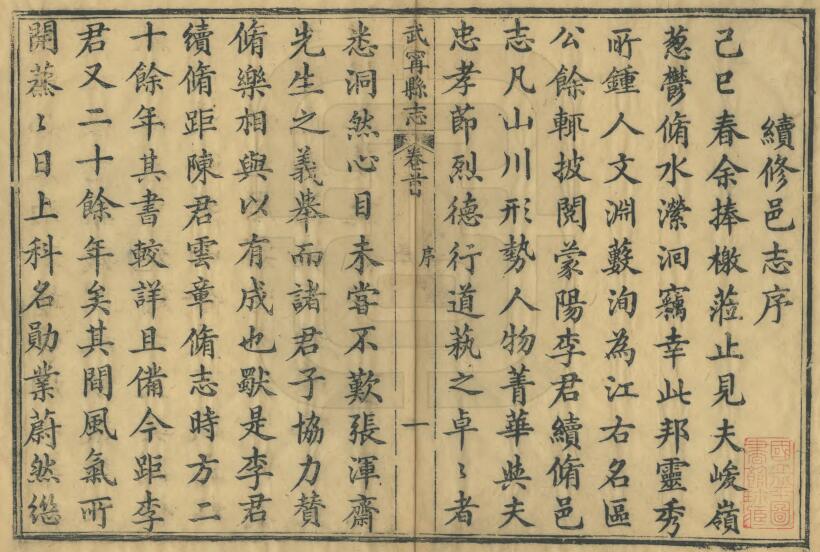 續修邑志序
己巳春余捧檄蒞止見夫峻嶺
蔥鬱脩水瀠洄竊幸此邦靈秀
所鍾人文淵藪洵為江右名區
公餘輒披閱蒙陽李君續脩邑
志凡山川形勢人物菁華與夫
忠孝節烈德行道蓺之卓〻者
武寧縣志
卷首
序
一
悉洞然心目未嘗不歎張渾齋
先生之義舉而諸君子協力贊
脩樂相與以有成也獸是李君
續脩距陳君雲章脩志時方二
十餘年其書較詳且備今距李
君又二十餘年矣其間風氣所
開蒸〻日上科名勛業蔚然繼